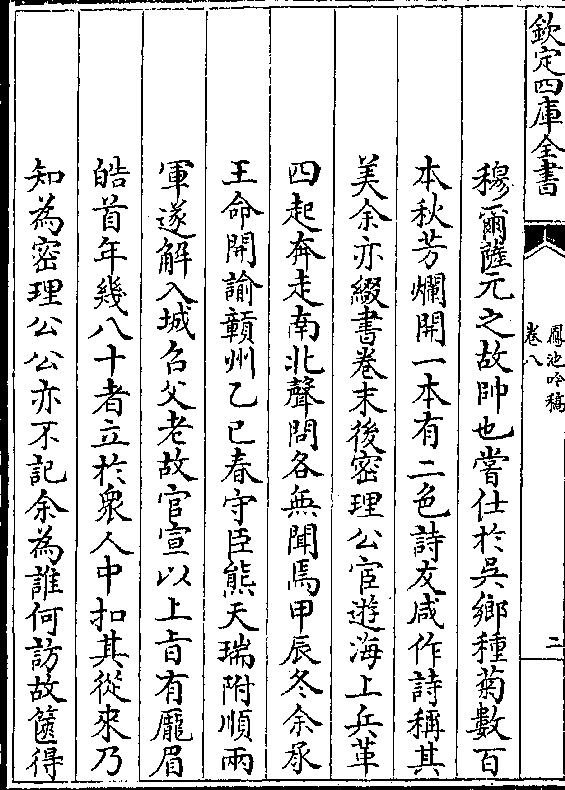 欽定四庫全書
鳳池吟稿
卷八
二
穆爾薩元之故帥也嘗仕於吳鄉種菊數百
本秋芳爛開一本有二色詩友咸作詩稱其
美余亦綴書卷末後密理公宦遊海上兵革
四起奔走南北聲問各無聞焉甲辰冬余承
王命開諭贛州乙已春守臣熊天瑞附順兩
軍遂解入城召父老故官宣以上旨有龐眉
皓首年幾八十者立於衆人中扣其從來乃
知為密理公公亦不記余為誰何訪故篋得